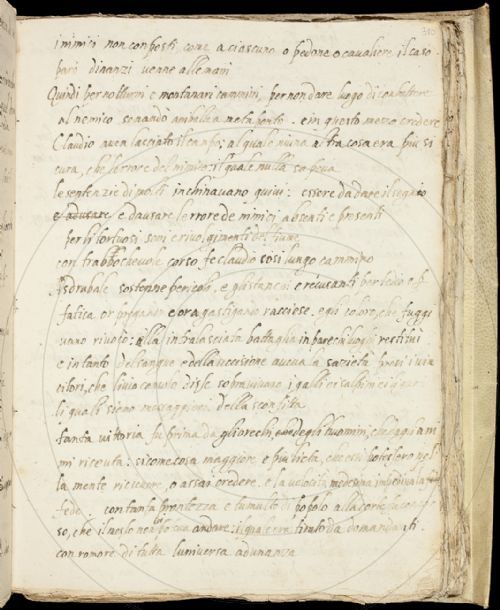 310
inimici non conposti come a ciascuno o pedone o cavaliere il caso
parò dinanzi venne alle mani
Quindi per notturni e montanari cammini, per non dare luogo di conbattere
al nemico senando anibale a metaponto . e in questo mezo credere
Claudio avea lasciato il canpo; al quale niuna altra cosa era piu si
cura, che lerrore del nimico: il quale nulla sapeva
le sentenzie di molti inchinavano quivi: essere da dare il segnio
e dausare lerrore de nimici absenti e presenti
per li tortuosi seni e rivolgimenti del fiume
con traboccevole corso fe claudo cosi lungo cammino
Asdrubale sostenne pericolo, e gli stanchi e recusanti per tedio e f
fatica or pregando e ora gastigando racciese. e gli coloro, che fuggi
vano rivocò: alla intralasciata battaglia in parecchi luoghi restituì
e in tanto del sangue e della uccisione aveva la sazietà presi i vin
citori, che livio
li quali sieno messaggieri della sconfitta
tanta vittoria fu prima da gli orecchi, che degli huomini, che
mi ricevuta: sicome cosa maggiore e più lieta, che essi potessero nel
la mente ricevere, o assai credere. e la velocità medesima impediva la
fede. con tanta prontezza e tumulto di popolo alla corte
so, che il messo non po sua andare: il quale era tirato da domandanti.
con romore di tutta l universa adunanza